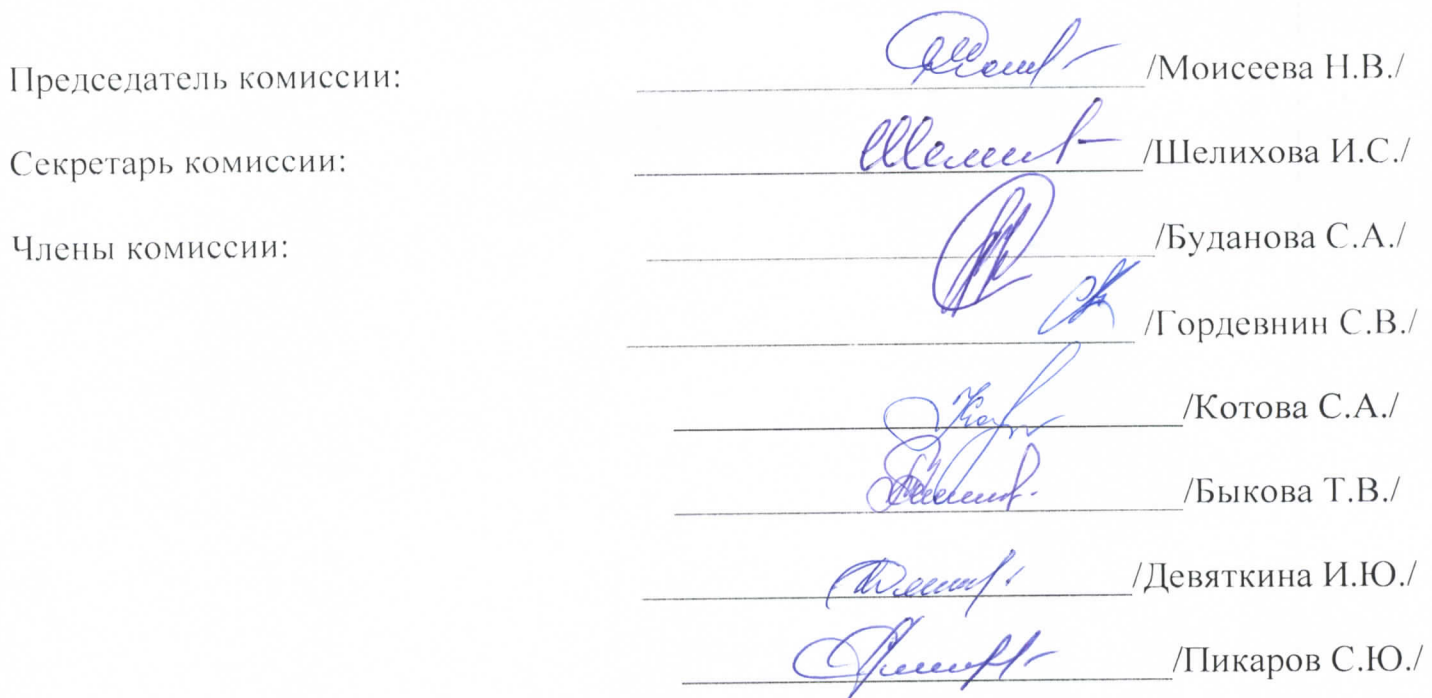 Председатель комиссии: /Моисеева Н.В./
Секретарь комиссии: /Шелихова И.С./
Члены комиссии: /Буданова С.А./
/Гордевнин С.В./
/Котова С.А./
/Быкова Т.В./
/Девяткина И.Ю./
/Пикаров С.Ю./